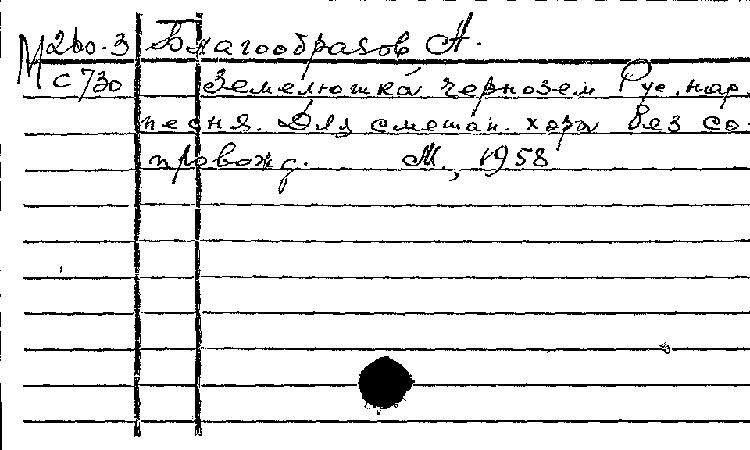 М 260-3 Благообразов А.
С 730 Земелюшка чернозем Рус. нар.
песня. Для смешан. хора без со-
провожд. М., 1958